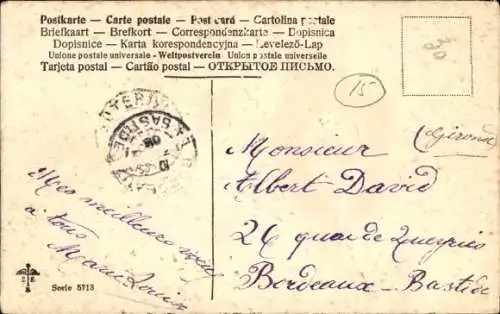 Postkarte — Carte postale — Post card — Cartolina postale
Briefkaart — Brefkort — Correspondenzkarte — Dopisnica
Dopisnice — Karta korespondencyjna — Levelező-Lap
Unione postale universale - Weltpostverein - Union postale universelle
Tarjeta postal — Cartão postal — ОТКРЫТОЕ ПИСЬМО.
30
15
BASTIDE
08
(Gironde)
Monsieur
Albert David
26 quai de Queyries
Bordeaux - Bastide
Mes meilleurs
à tous
Marie Louise
Serie 5713